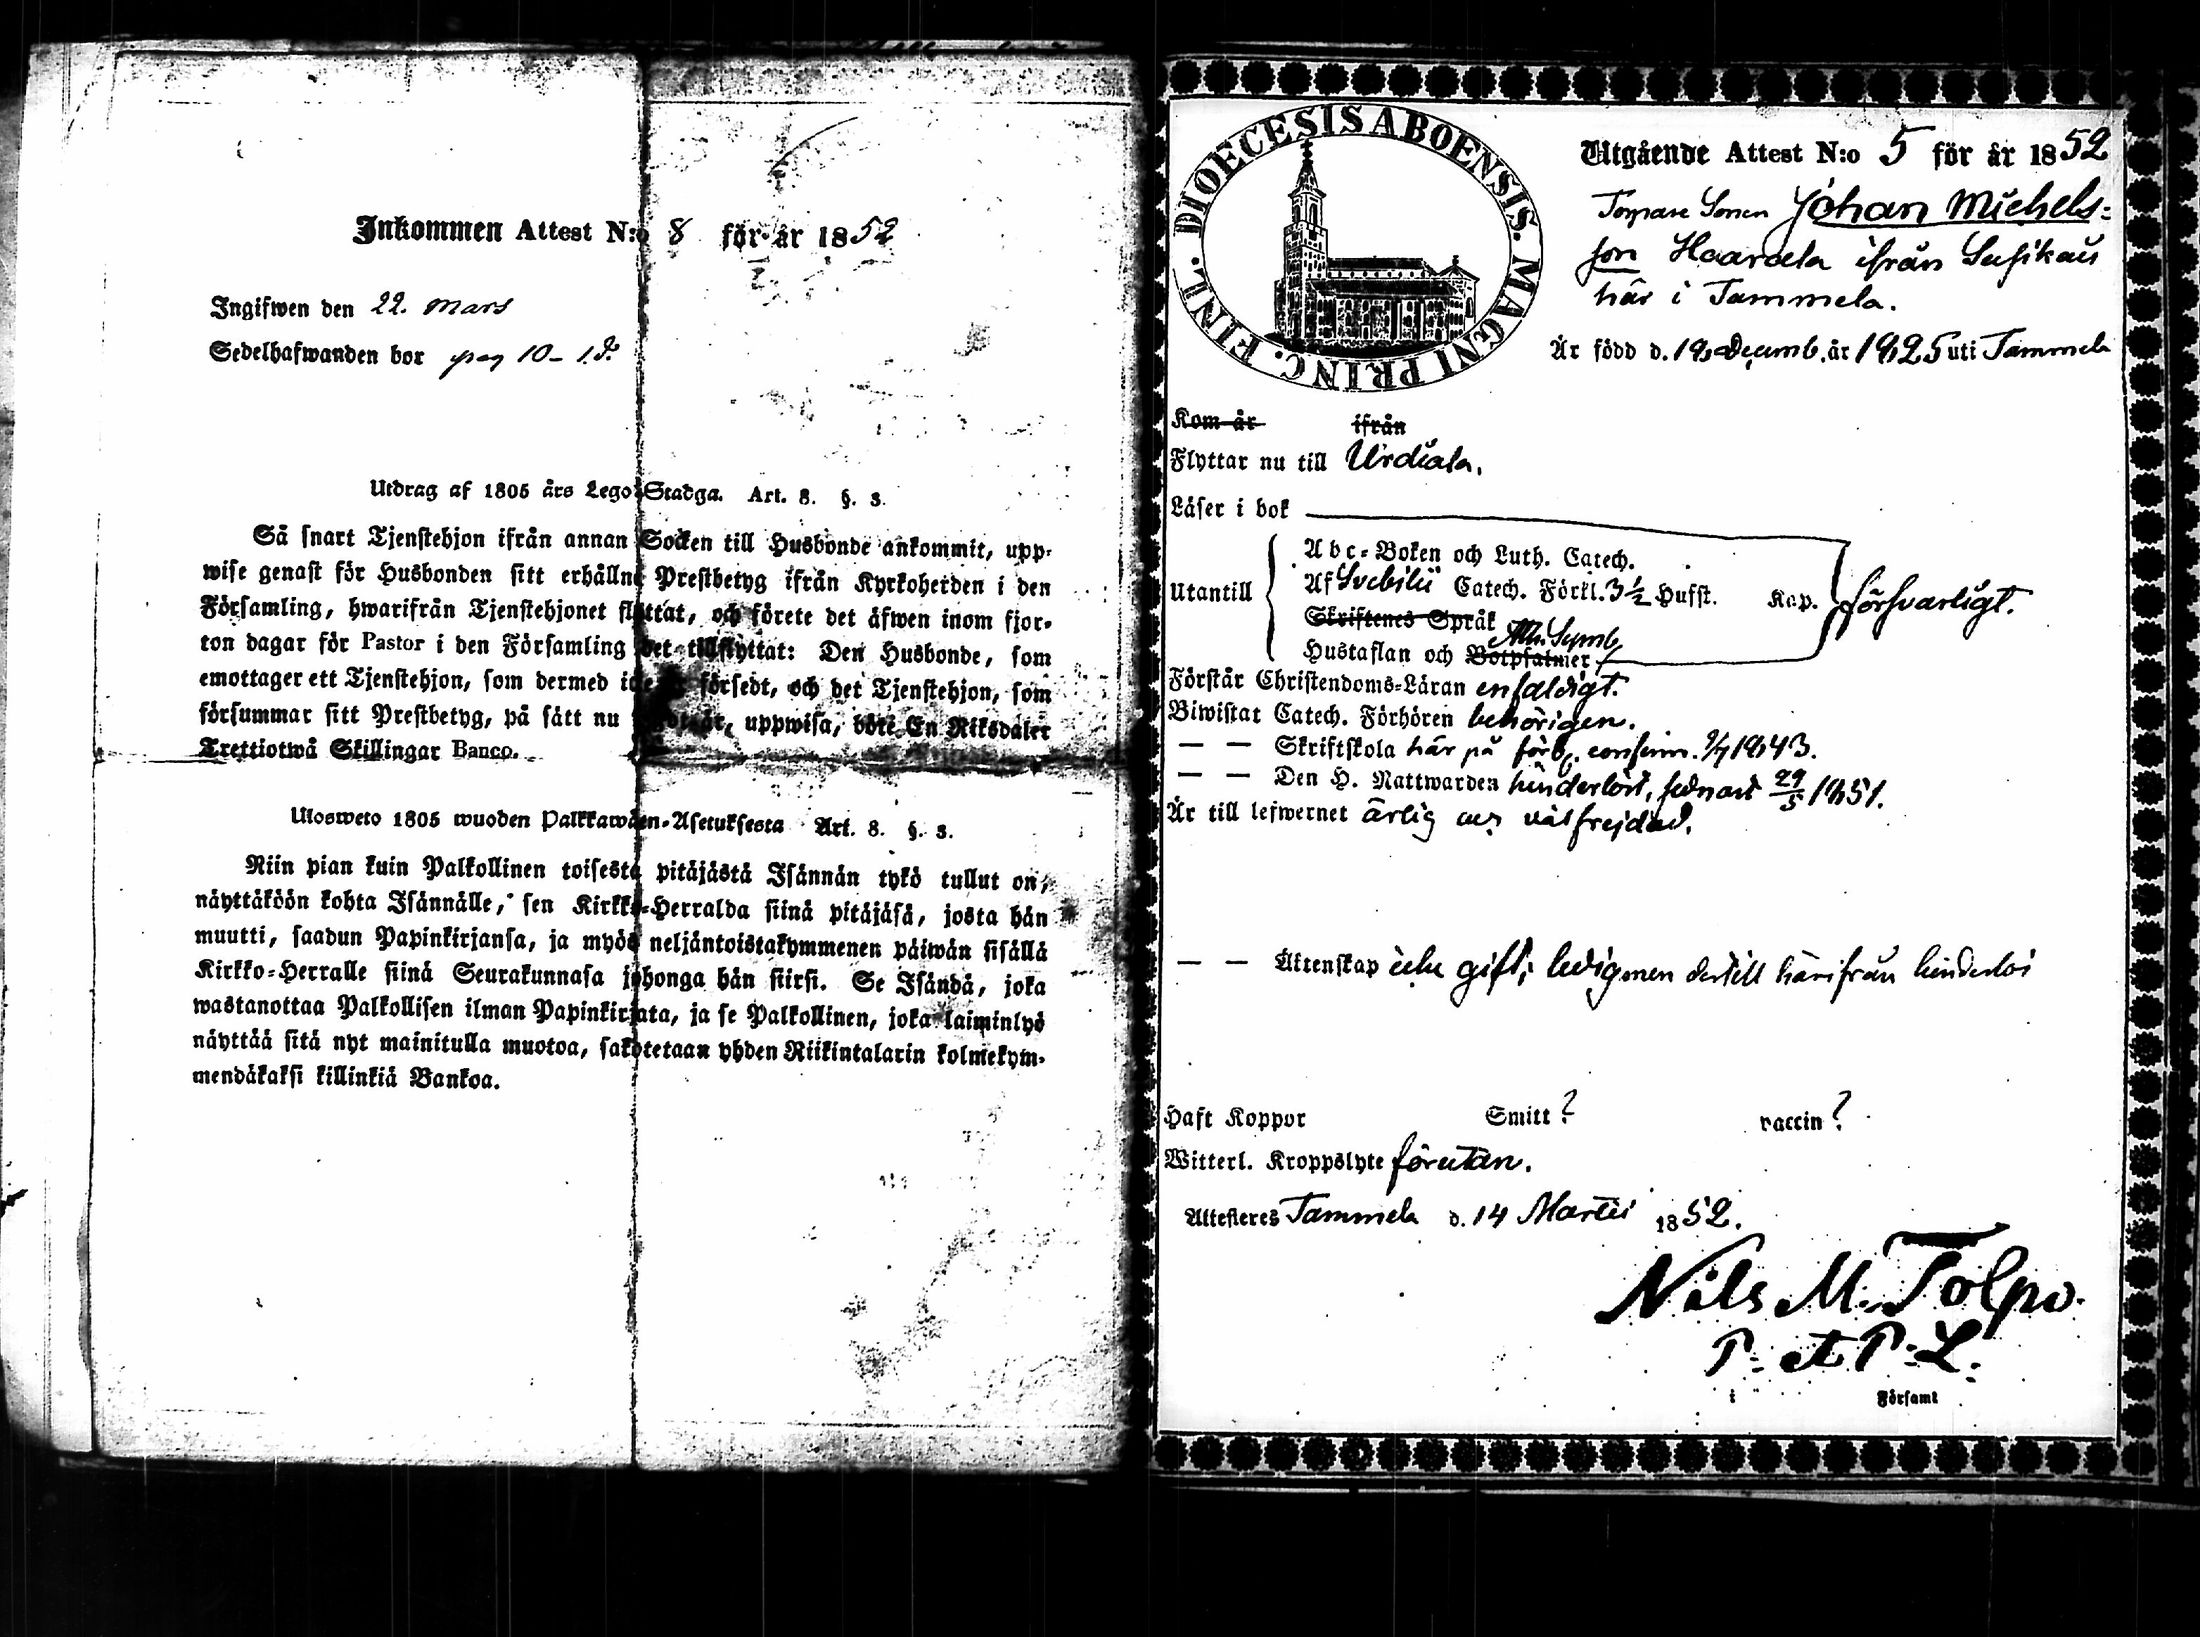 Inkommen Attest N:o 8 för år 1852
Ingifwen den 22. Mars
Sedelhafwanden bor pag 10
Utdrag af 1805 års Lego-Stadga. Art. 8. §. 3.
Så snart Tjenstehjon ifrån annan Socken till Husbonde ankommit, upp-
wise genast för Husbonden sitt erhållne Prestbetyg ifrån Kyrkoherden i den
Församling, hwarifrån Tjenstehjonet flyttat, och förete det äfwen inom fjor-
ton dagar för Pastor i den Församling det tillflyttat: Den Husbonde, som
emottager ett Tjenstehjon, som dermed icke är försedt, och det Tjenstehjon, som
försummar sitt Prestbetyg, på sätt nu uppwisa, böte En Riksdaler
Trettiotwå Skillingar Banco.
Ulosweto 1805 wuoden Palkkawäen-Asetuksesta Art. 8. §. 3.
Niin pian kuin Palkollinen toisesta pitäjästä Isännän tykö tullut on,
näyttäköön kohta Isännälle, sen Kirkko-Herralda siinä pitäjäsä, josta hän
muutti, saadun Papinkirjansa, ja myös neljäntoistakymmenen päiwän sisällä
Kirkko-Herralle siinä Seurakunnasa johonga hän siirsi. Se Isändä, joka
wastanottaa Palkollisen ilman Papinkirjata, ja se Palkollinen, joka laiminlyö
näyttää sitä nyt mainitulla muotoa, sakotetaan yhden Riikintalarin kolmekym-
mendäkaksi killinkiä Bankoa.
DIOECESIS ABOENSIS. MAGNI PRINC. FINL.
Utgående Attest N:o 5 för år 1852
Torpare Sonen Johan Michels-
son Haarala ifrån Susikas
här i Tammela.
Är född d. 18 Decemb. år 1825 uti Tammela
Kom år ifrån
Flyttar nu till Urdiala.
Läser i bok
Utantill
Abc-Boken och Luth. Catech.
Af Svebilii Catech. Förkl. 3½ Hufst. Kap. försvarligt.
Skriftenes Språk
Hustaflan och Botpsalmer Ath. Symb.
Förstår Christendoms-Läran enfaldigt.
Biwistat Catech. Förhören behörigen.
— — Skriftskola här på förb. confirm. 9/7 1843.
— — Den H. Nattwarden hinderlöst, sednast 29/5 1851.
Är till lefwernet ärlig och välfrejdad.
— — Äktenskap icke gift; ledig men dertill härifrån hinderlös
Haft Koppor Smitt? vaccin?
Witterl. Kroppslyte förutan.
Attesteres Tammela d. 14 Martii 1852.
Nils M. Tolpo.
P. et P. L.
i Församl